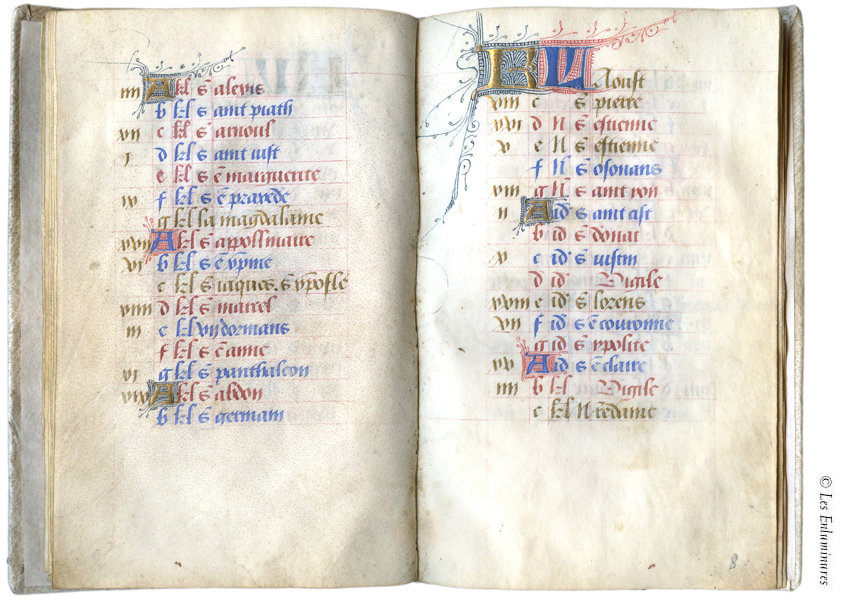 iiii A kl s alexis
b kl s amt piath
vii c kl s arnoul
i d kl s amt iust
e kl s marguerite
iv f kl s praxede
g kl la magdalaine
A kl s appollinaire
vi b kl s
c kl s iaques. s
d kl s marcel
iii e kl vii dormans
f kl s anne
vi g kl s panthaleon
A kl s abdon
b kl s germain
KL Aoust
c s pierre
d N s estienne
v e N s estienne
f N s osouans
viii g N s amt
ii A id s amt
b id s donat
v c id s iustin
d id Vigile
e id s lorens
vii f id s couronne
g id s ypolite
A id s claire
iiii b kl Vigile
c kl N redame
8
© Les Enluminures